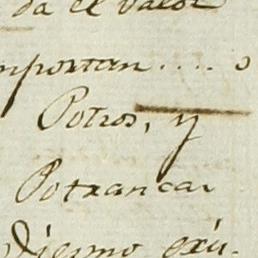 da el valor
mportan .... o
Potros, y
Potrancas
Diezmo exîu-